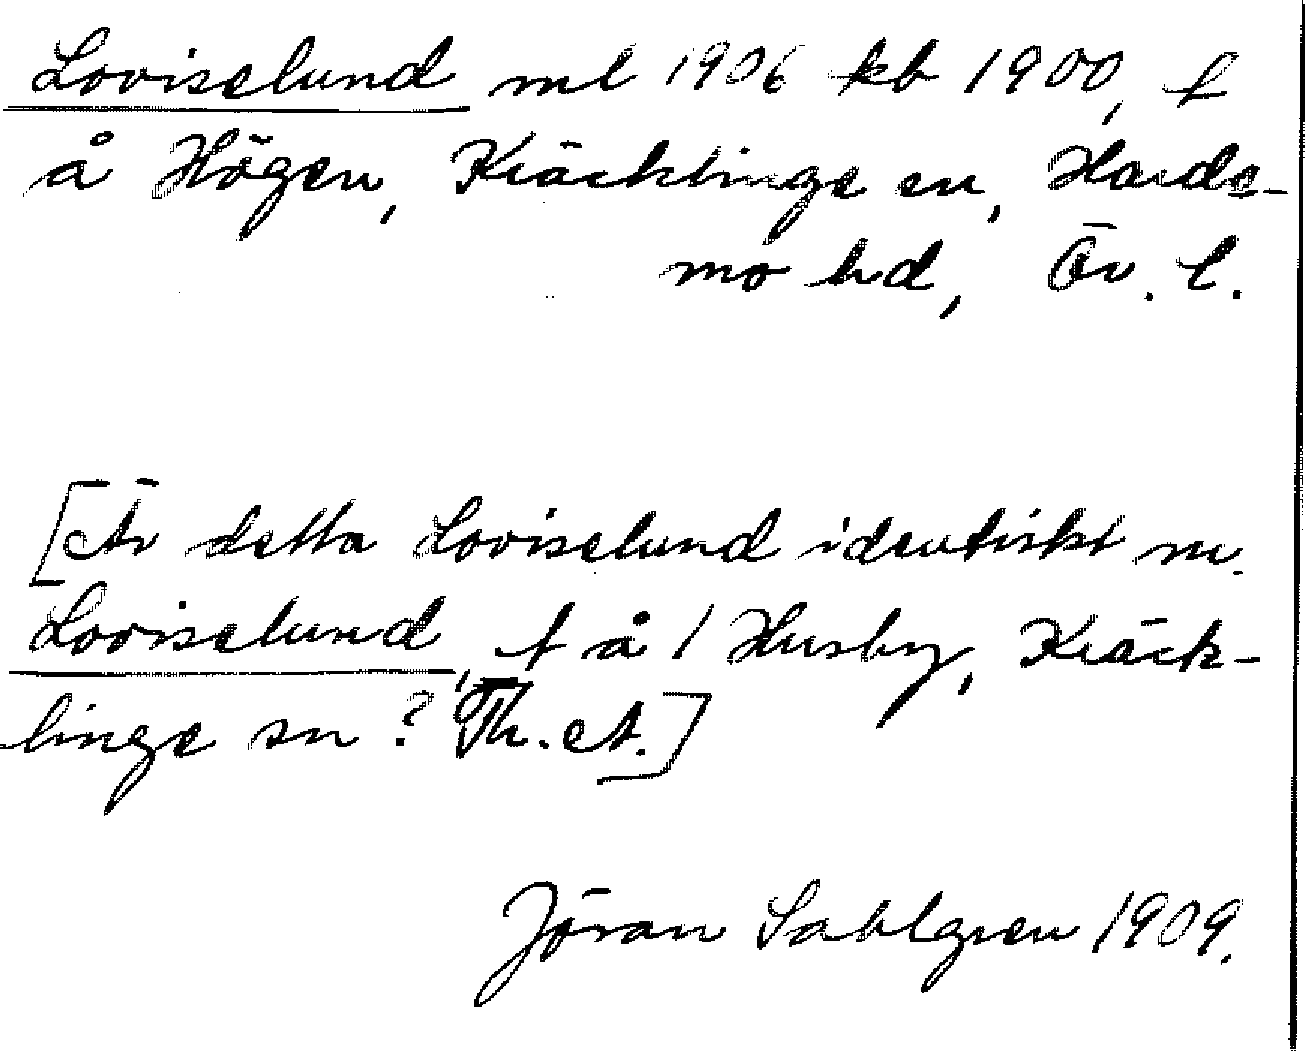 Loviselund ml 1906 kb 1900, f
å Högen, Kräcklinge sn, Hards-
mo hd, Ör. l.
[Är detta Loviselund identiskt m.
Loviselund, f å 1 Husby, Kräck-
linge sn? Th. A.]
Jöran Sahlgren 1909.